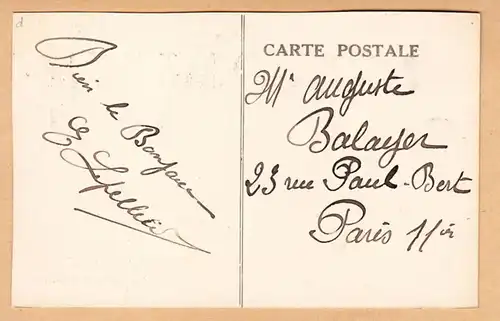 d
Bien le Bonjour
CARTE POSTALE
Mr Auguste
Balayer
23 rue Paul-Bert
Paris 11ie